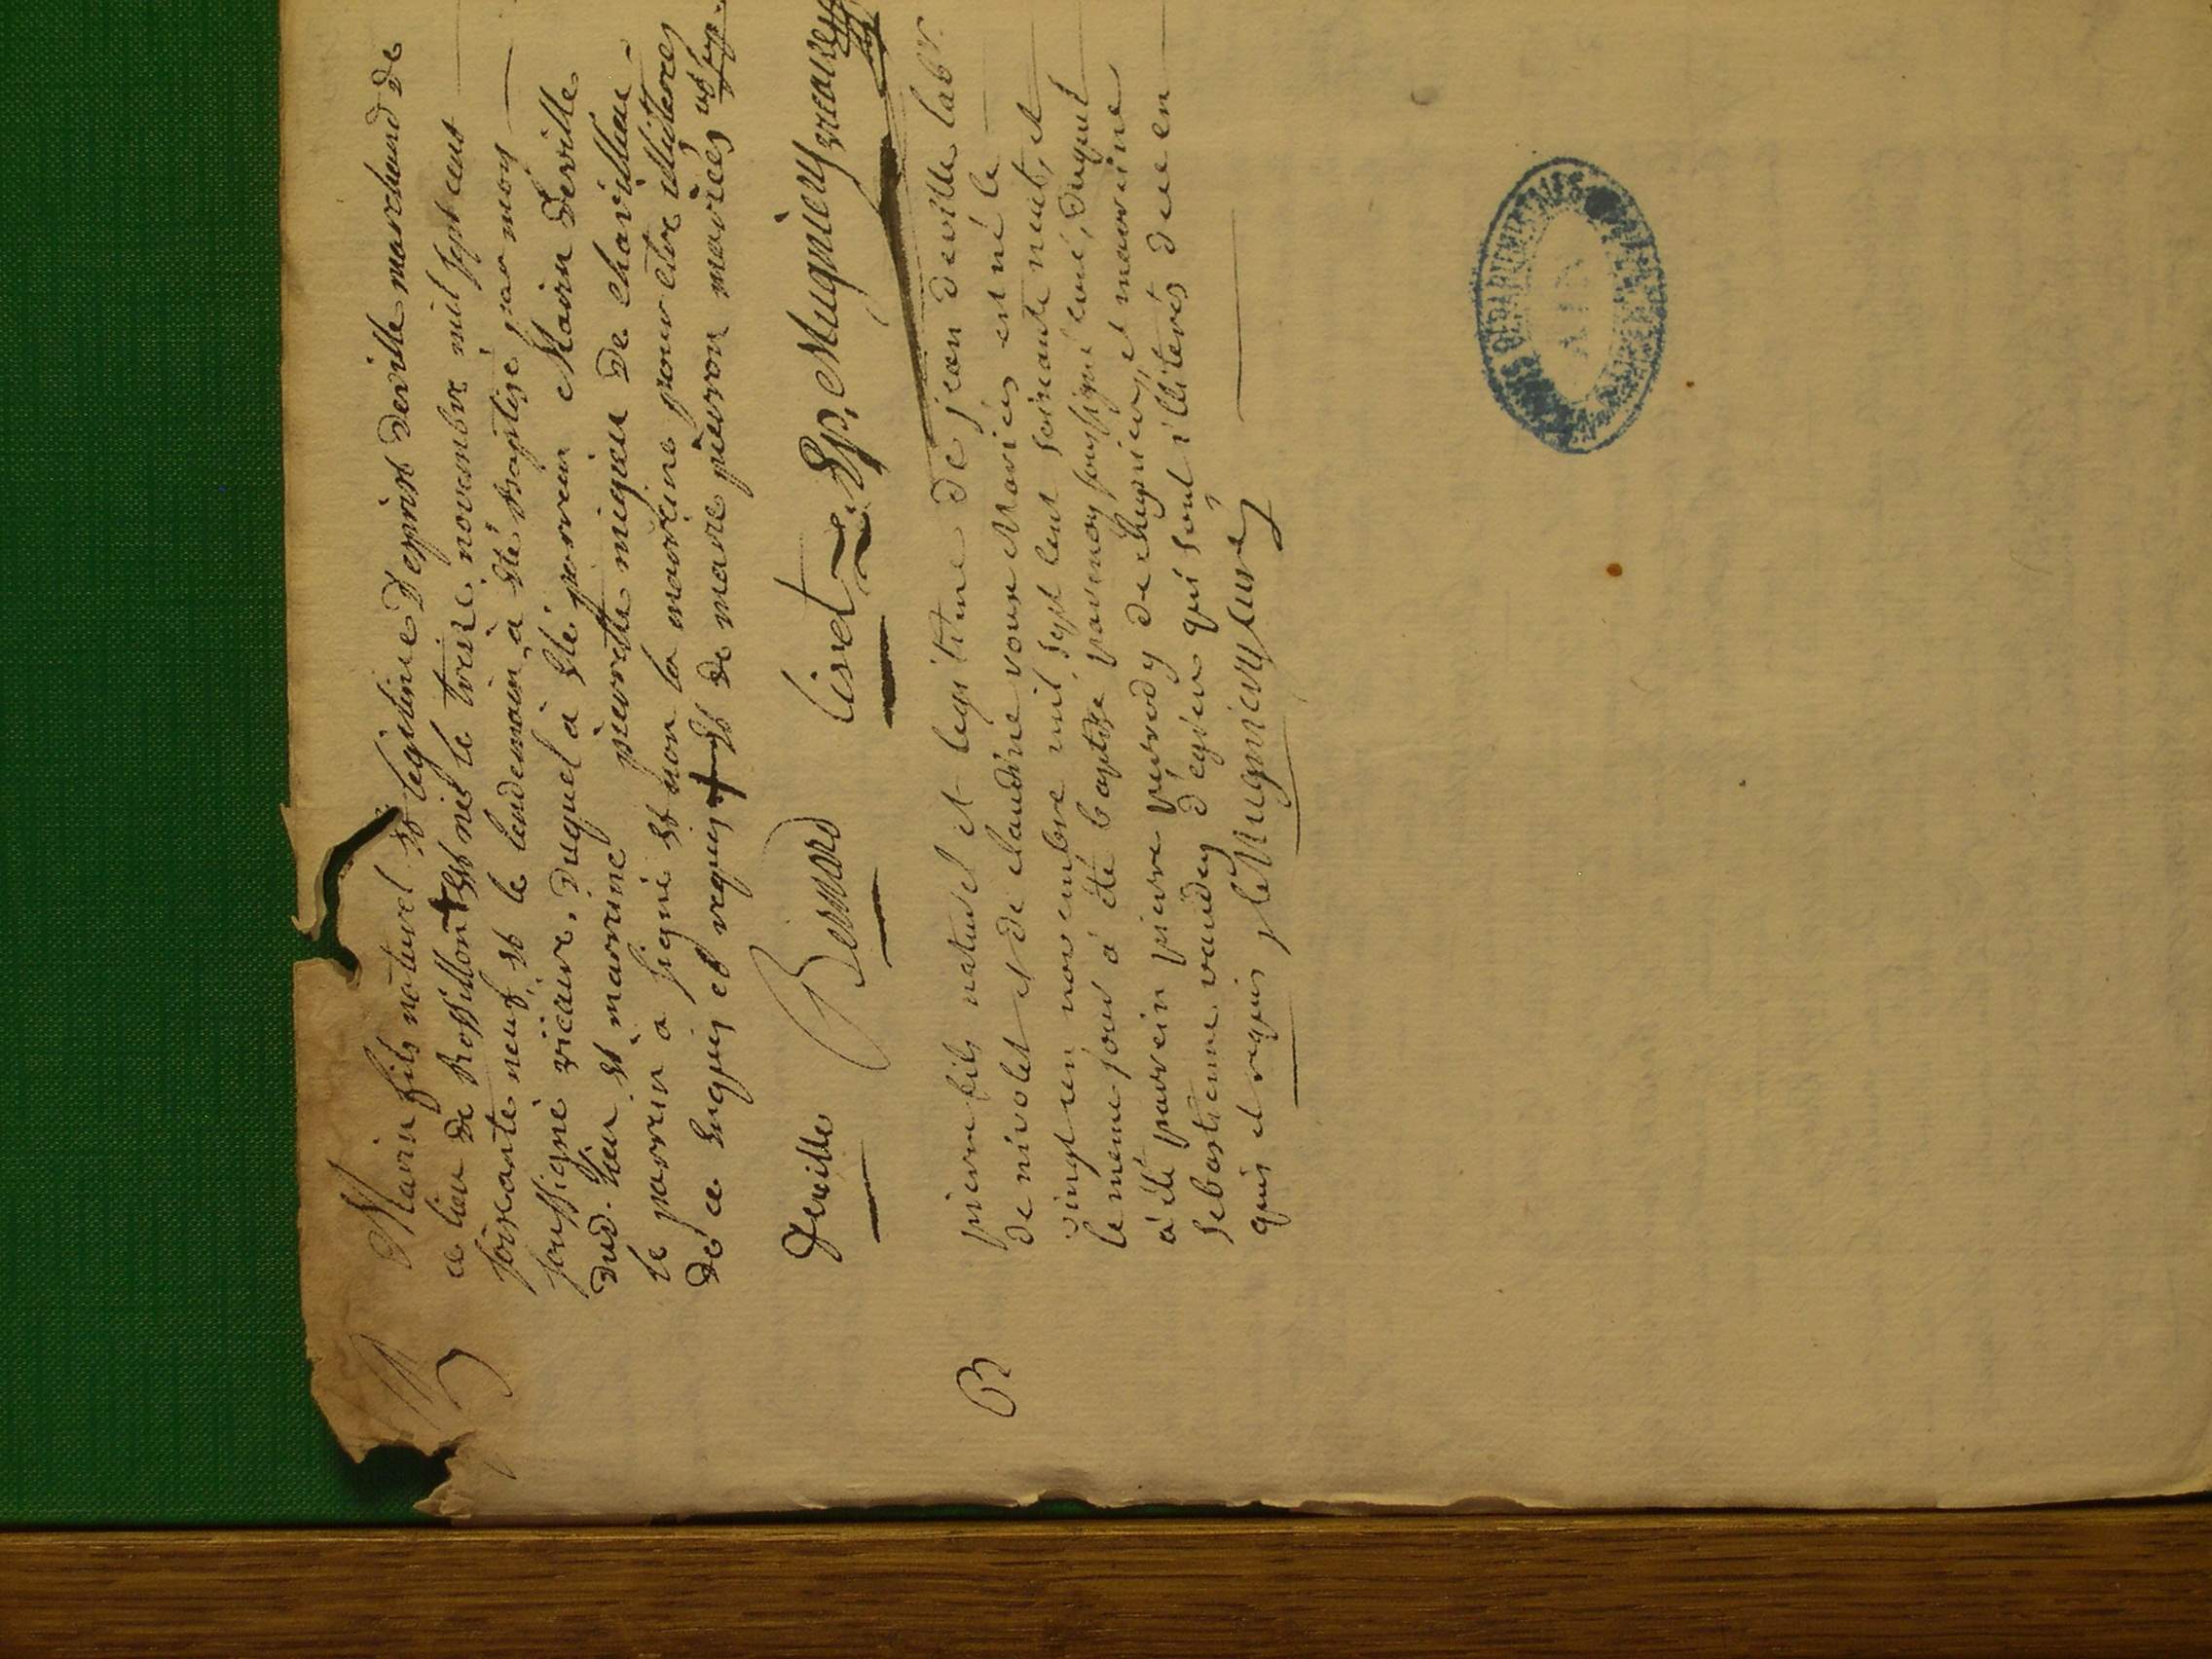 B
Marin fils naturel et legitime D'esprit Deville marchand de
ce lieu de Rossillon + Est né le treize novembre mil sept cent
soixante neuf et le lendemain à été baptisé par moy
soussigné vicaire. Duquel à Eté parrein Marin Deville
dud. lieu et marrine pierrette migieu de chavillieu
le parrin a signé et non la marreine pour être illitérée
de ce enquis et requis + Et de marie pierron mariés
Deville Bernard Lisset Sp. Mugniery vicaire
B
pierre fils naturel et legitime de jean deville lab.r
de nivolet et de claudine mariés est né le
vingt un novembre mil sept cent soixante neuf, et
le meme jour a été baptisé par moy soussigné curé, duquel
a été parrein pierre de Cheignieu, et marreine
sebastienne d'egieu qui sont illiterés de ce en
quis et requis Mugniery curé
ARCHIVES DEPARTEMENTALES
AIN